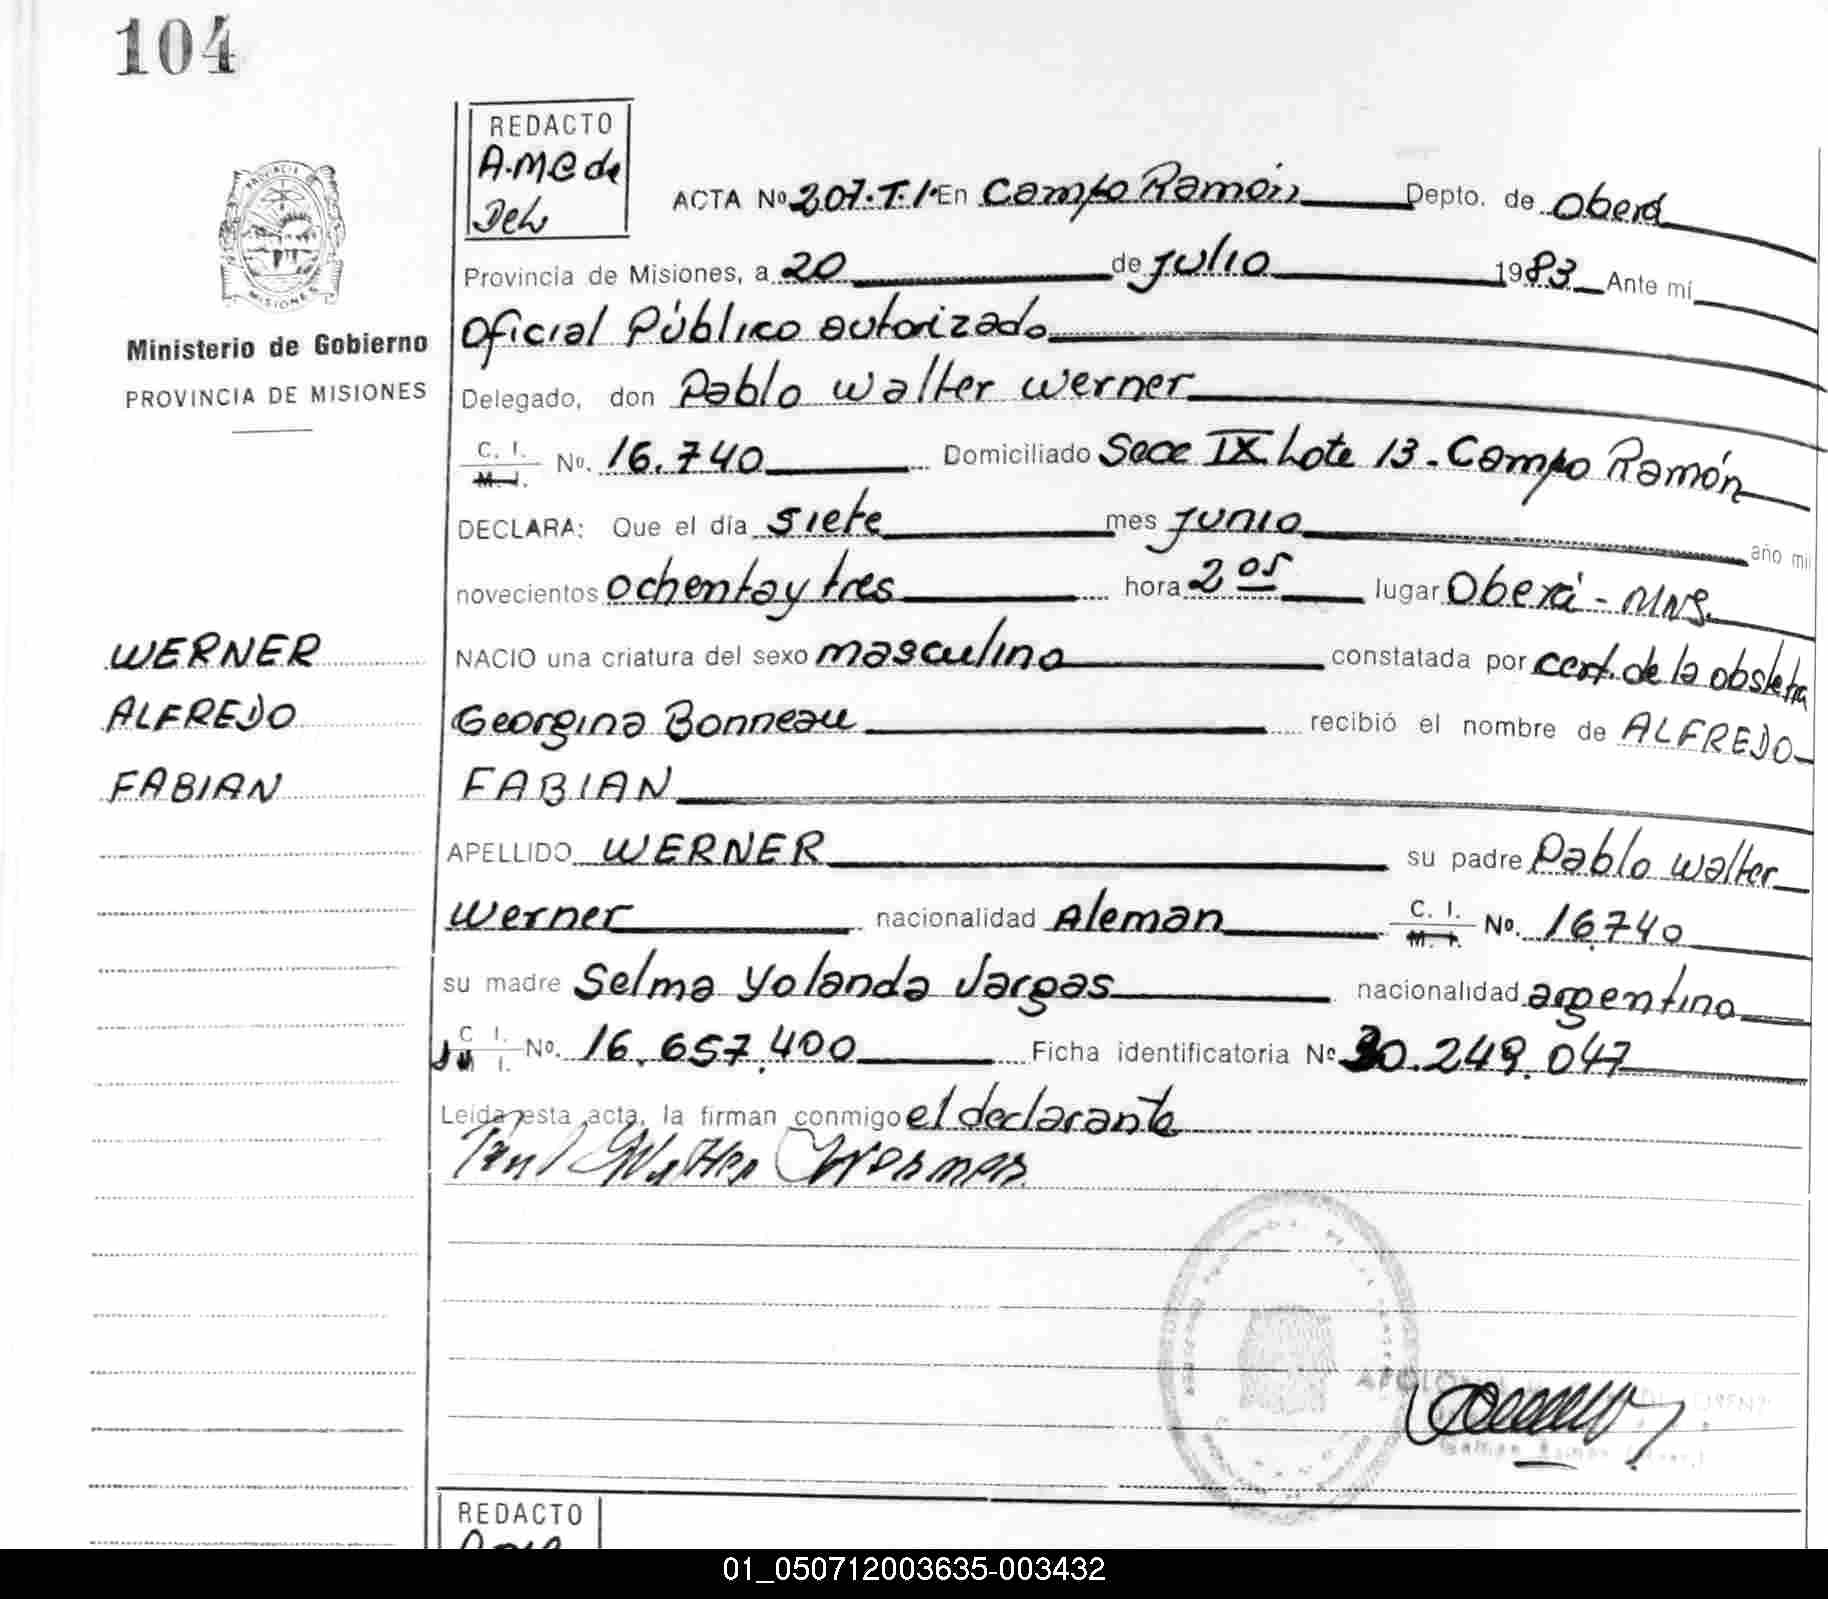 104
REDACTO
A.MC de
Delv
ACTA Nº 207.T.I. En Campo Ramón Depto. de Oberá
Provincia de Misiones, a 20 de julio 1983 Ante mí
Oficial Público autorizado
Ministerio de Gobierno
PROVINCIA DE MISIONES
Delegado, don Pablo Walter Werner
C. I. M. I. No. 16.740 Domiciliado Secc IX Lote 13. Campo Ramón
DECLARA: Que el día siete mes junio año mil
novecientos ochenta y tres hora 2 05 lugar Oberá - Mns.
WERNER
NACIO una criatura del sexo masculino constatada por cert. de la obstetra
ALFREDO
Georgina Bonneau recibió el nombre de ALFREDO
FABIAN
FABIAN
APELLIDO WERNER su padre Pablo Walter
Werner nacionalidad Aleman C. I. M. I. No. 16740
su madre Selma Yolanda Vargas nacionalidad argentina
C I. M I. No. 16.657.400 Ficha identificatoria No 30.249.047
Leida esta acta, la firman conmigo el declarante
Paul Walter Werner
PROVINCIA
MISIONES
REDACTO
01_050712003635-003432